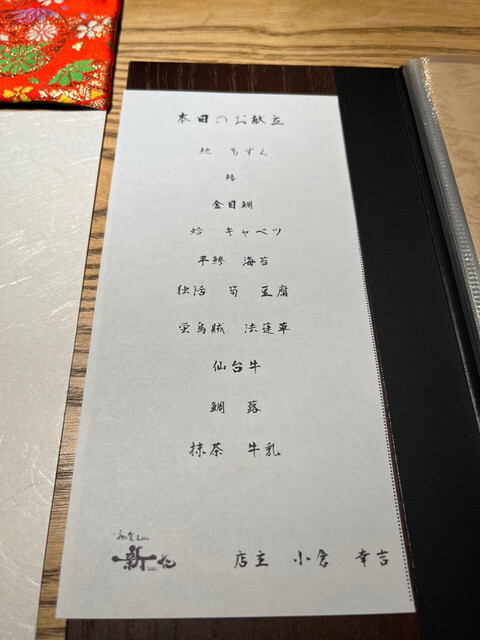 本日のお献立
鮑 もずく
鰆
金目鯛
蛤 キャベツ
平鯵 海苔
独活 筍 豆腐
蛍烏賊 法蓮草
仙台牛
鯛 蕗
抹茶 牛乳
新
店主 小倉 幸吉